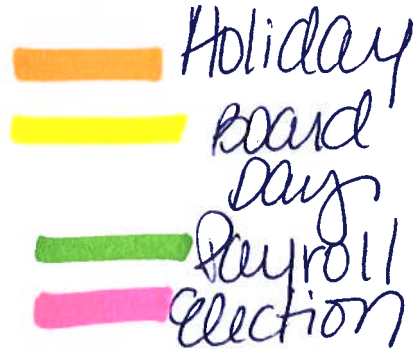 Holiday
Board
Days
Payroll
Election